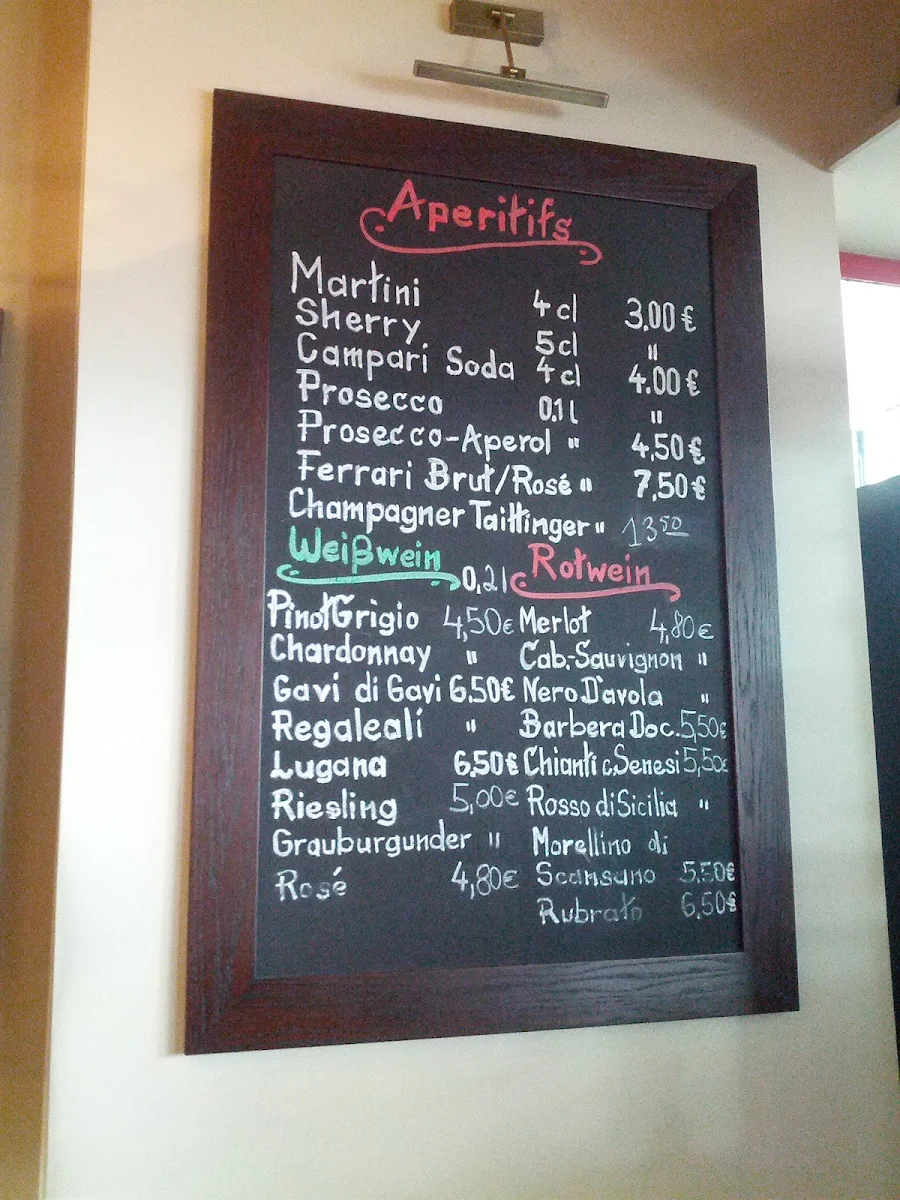 Aperitifs
Martini 4 cl 3.00 €
Sherry 5cl "
Campari Soda 4 cl 4.00 €
Prosecco 0.1 l "
Prosecco-Aperol " 4,50 €
Ferrari Brut/Rosé " 7,50 €
Champagner Taittinger " 13 50
Weißwein 0,2 l Rotwein
Pinot Grigio 4,50 € Merlot 4,80 €
Chardonnay " Cab.-Sauvignon "
Gavi di Gavi 6.50€ Nero D'avola "
Regaleali " Barbera Doc. 5,50€
Lugana 6.50€ Chianti c. Senesi 5,50€
Riesling 5,00€ Rosso di Sicilia "
Grauburgunder " Morellino di
Rosé 4,80€ Scansano 5.50€
Rubrato 6,50€